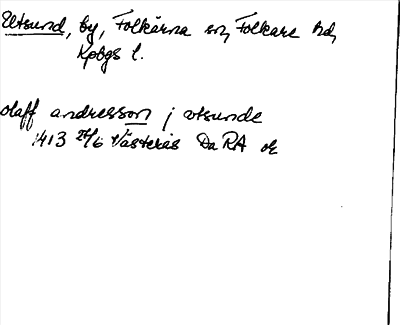 Utsund, by, Folkärna sn, Folkare hd,
Kpbgs l.
olaff andresson j vtsunde
1413 26/6 Västerås Da RA or